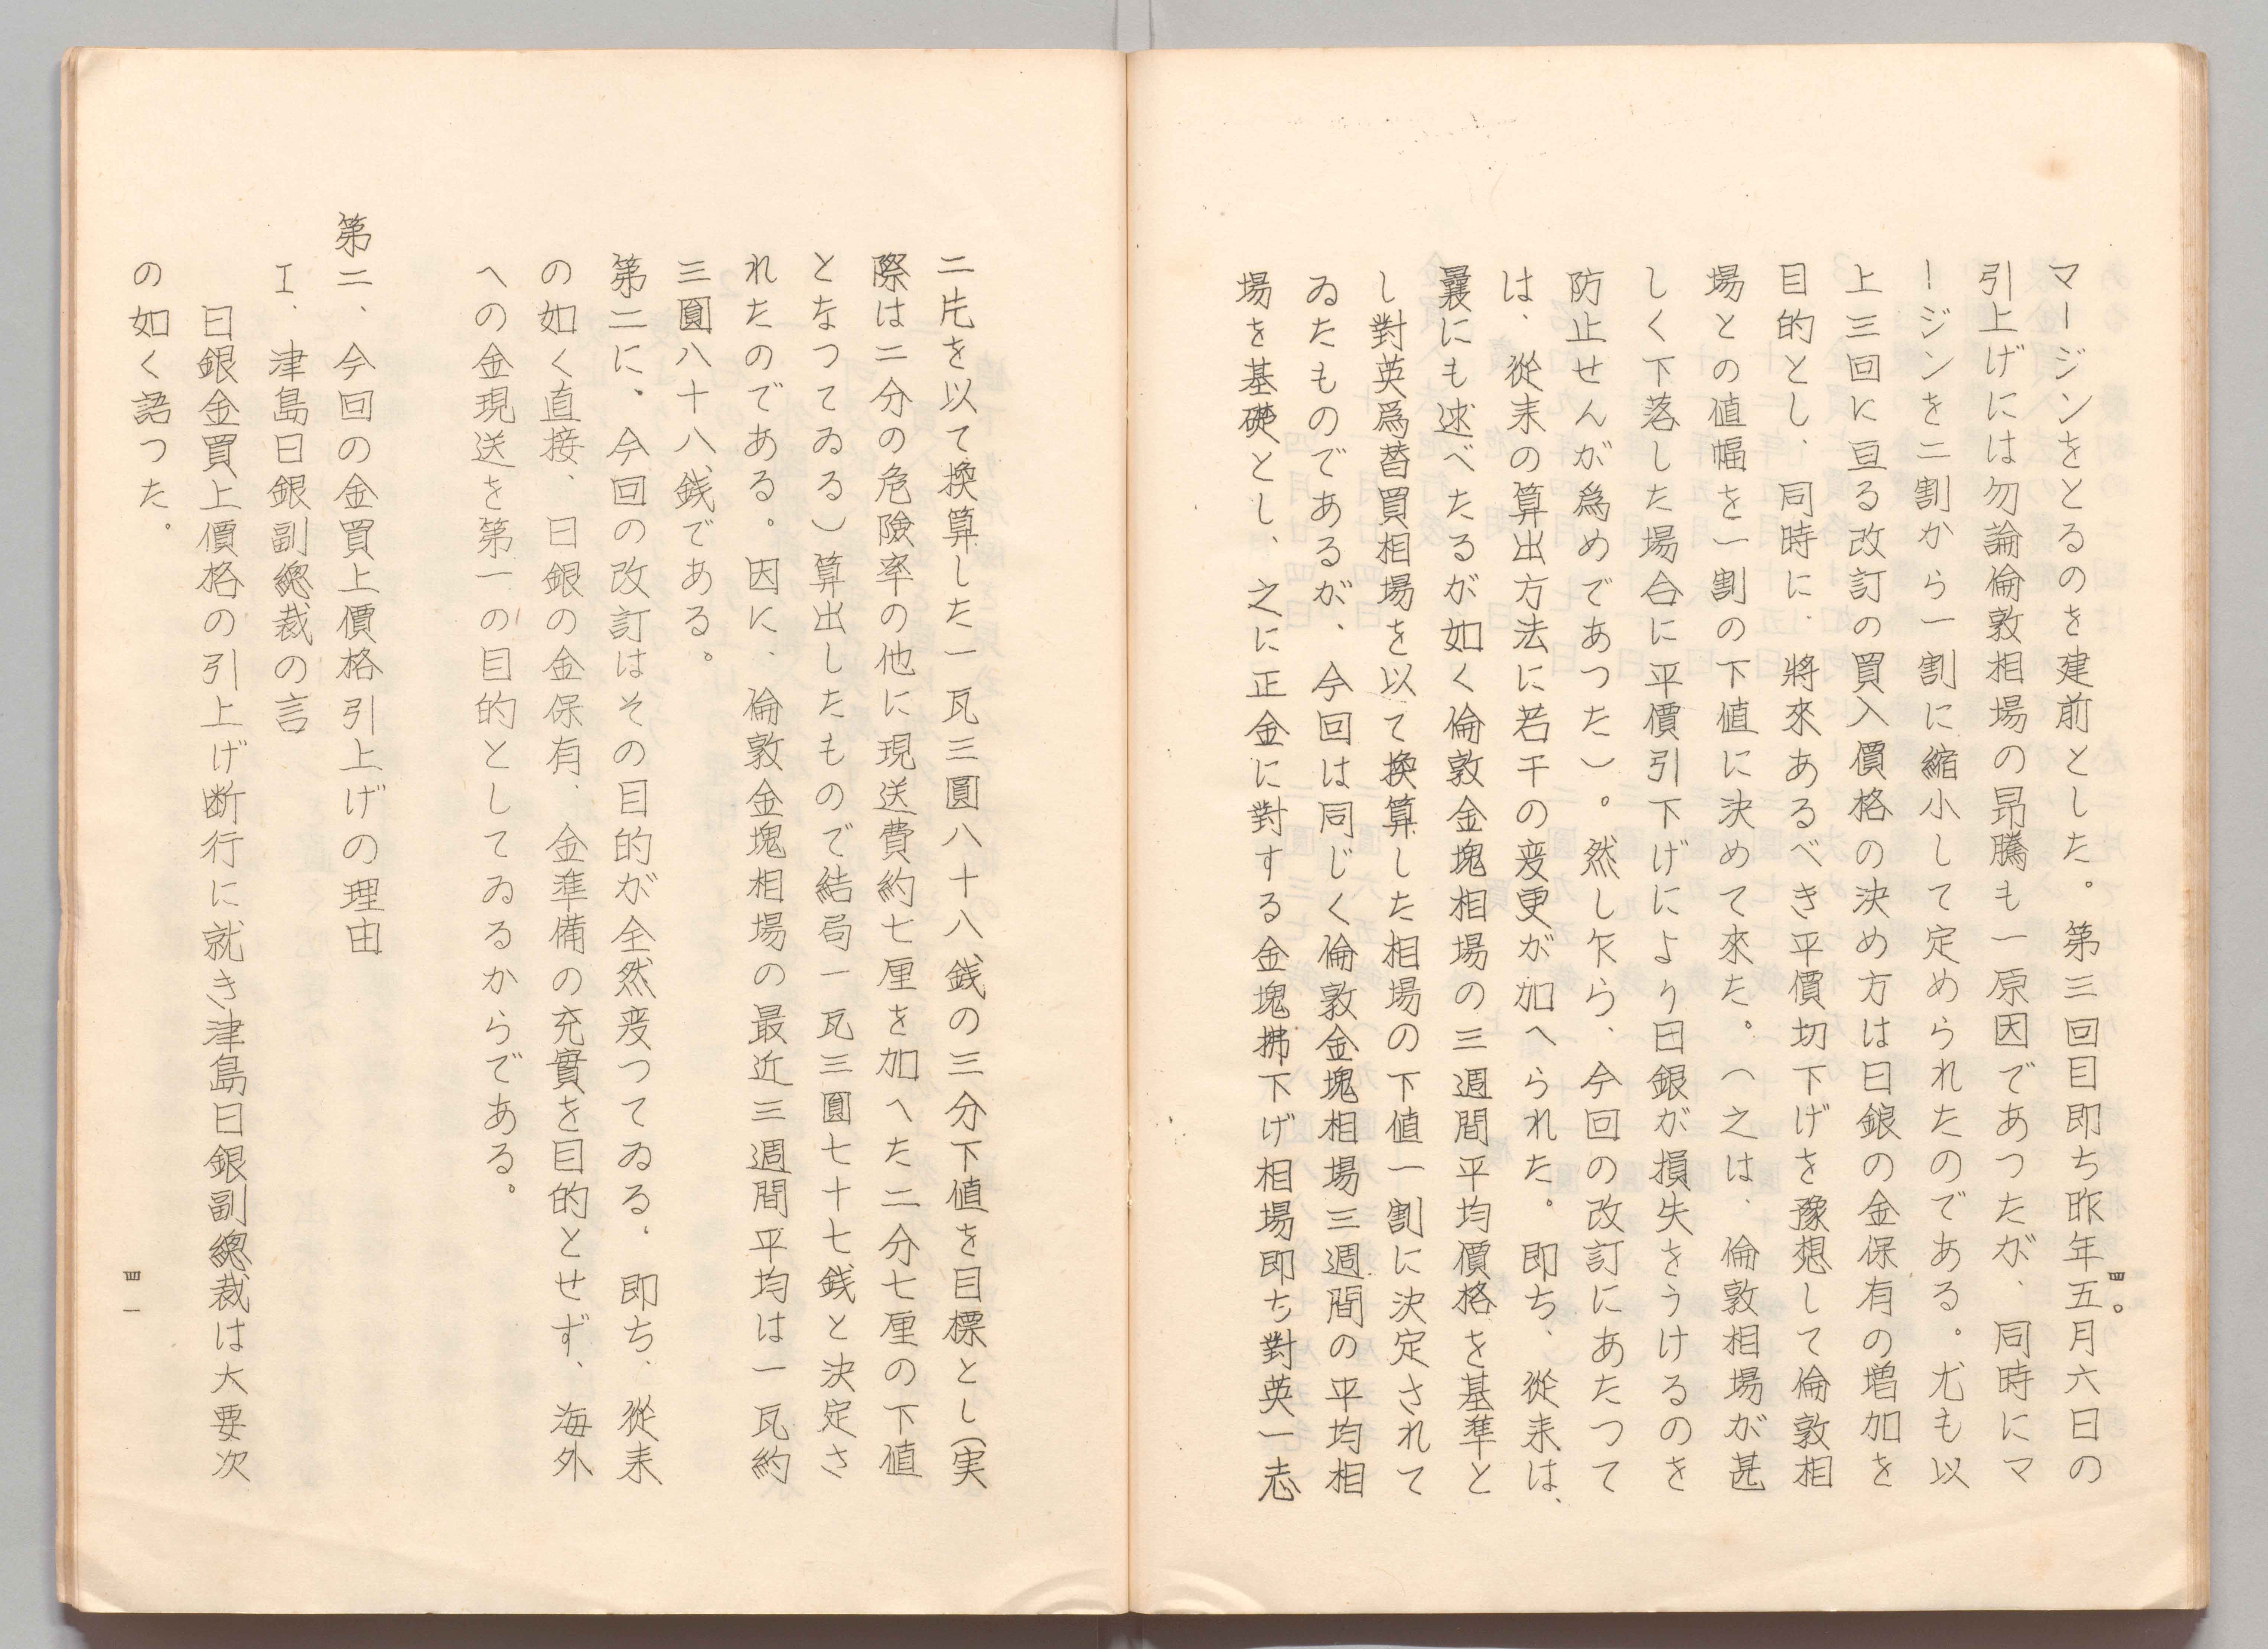 マージンをとるのを建前とした。第三回目即ち昨年五月六日の
引上げには勿論倫敦相場の昻騰も一原因であつたが、同時にマ
ージンを二割から一割に縮小して定められたのである。尤も以
上三回に亘る改訂の買入價格の決め方は日銀の金保有の増加を
目的とし、同時に、將來あるべき平價切下げを豫想して倫敦相
場との値幅を一割の下値に決めて來た。（之は、倫敦相場が甚
しく下落した場合に平價引下げにより日銀が損失をうけるのを
防止せんが爲めであつた）。然し乍ら、今回の改訂にあたつて
は、從来の算出方法に若干の変更が加へられた。即ち、從来は、
曩にも述べたるが如く倫敦金塊相場の三週間平均價格を基準と
し對英爲替買相場を以て換算した相場の下値一割に決定されて
ゐたものであるが、今回は同じく倫敦金塊相場三週間の平均相
場を基礎とし、之に正金に對する金塊拂下げ相場即ち對英一志
四〇
二片を以て換算した一瓦三圓八十八銭の三分下値を目標とし（実
際は二分の危險率の他に現送費約七厘を加へた二分七厘の下値
となつてゐる）算出したもので結局一瓦三圓七十七銭と決定さ
れたのである。因に、倫敦金塊相場の最近三週間平均は一瓦約
三圓八十八銭である。
第二に、今回の改訂はその目的が全然変つてゐる、即ち、從来
の如く直接、日銀の金保有、金準備の充實を目的とせず、海外
への金現送を第一の目的としてゐるからである。
第二、今回の金買上價格引上げの理由
I、津島日銀副總裁の言
日銀金買上價格の引上げ断行に就き津島日銀副總裁は大要次
の如く語つた。
四一